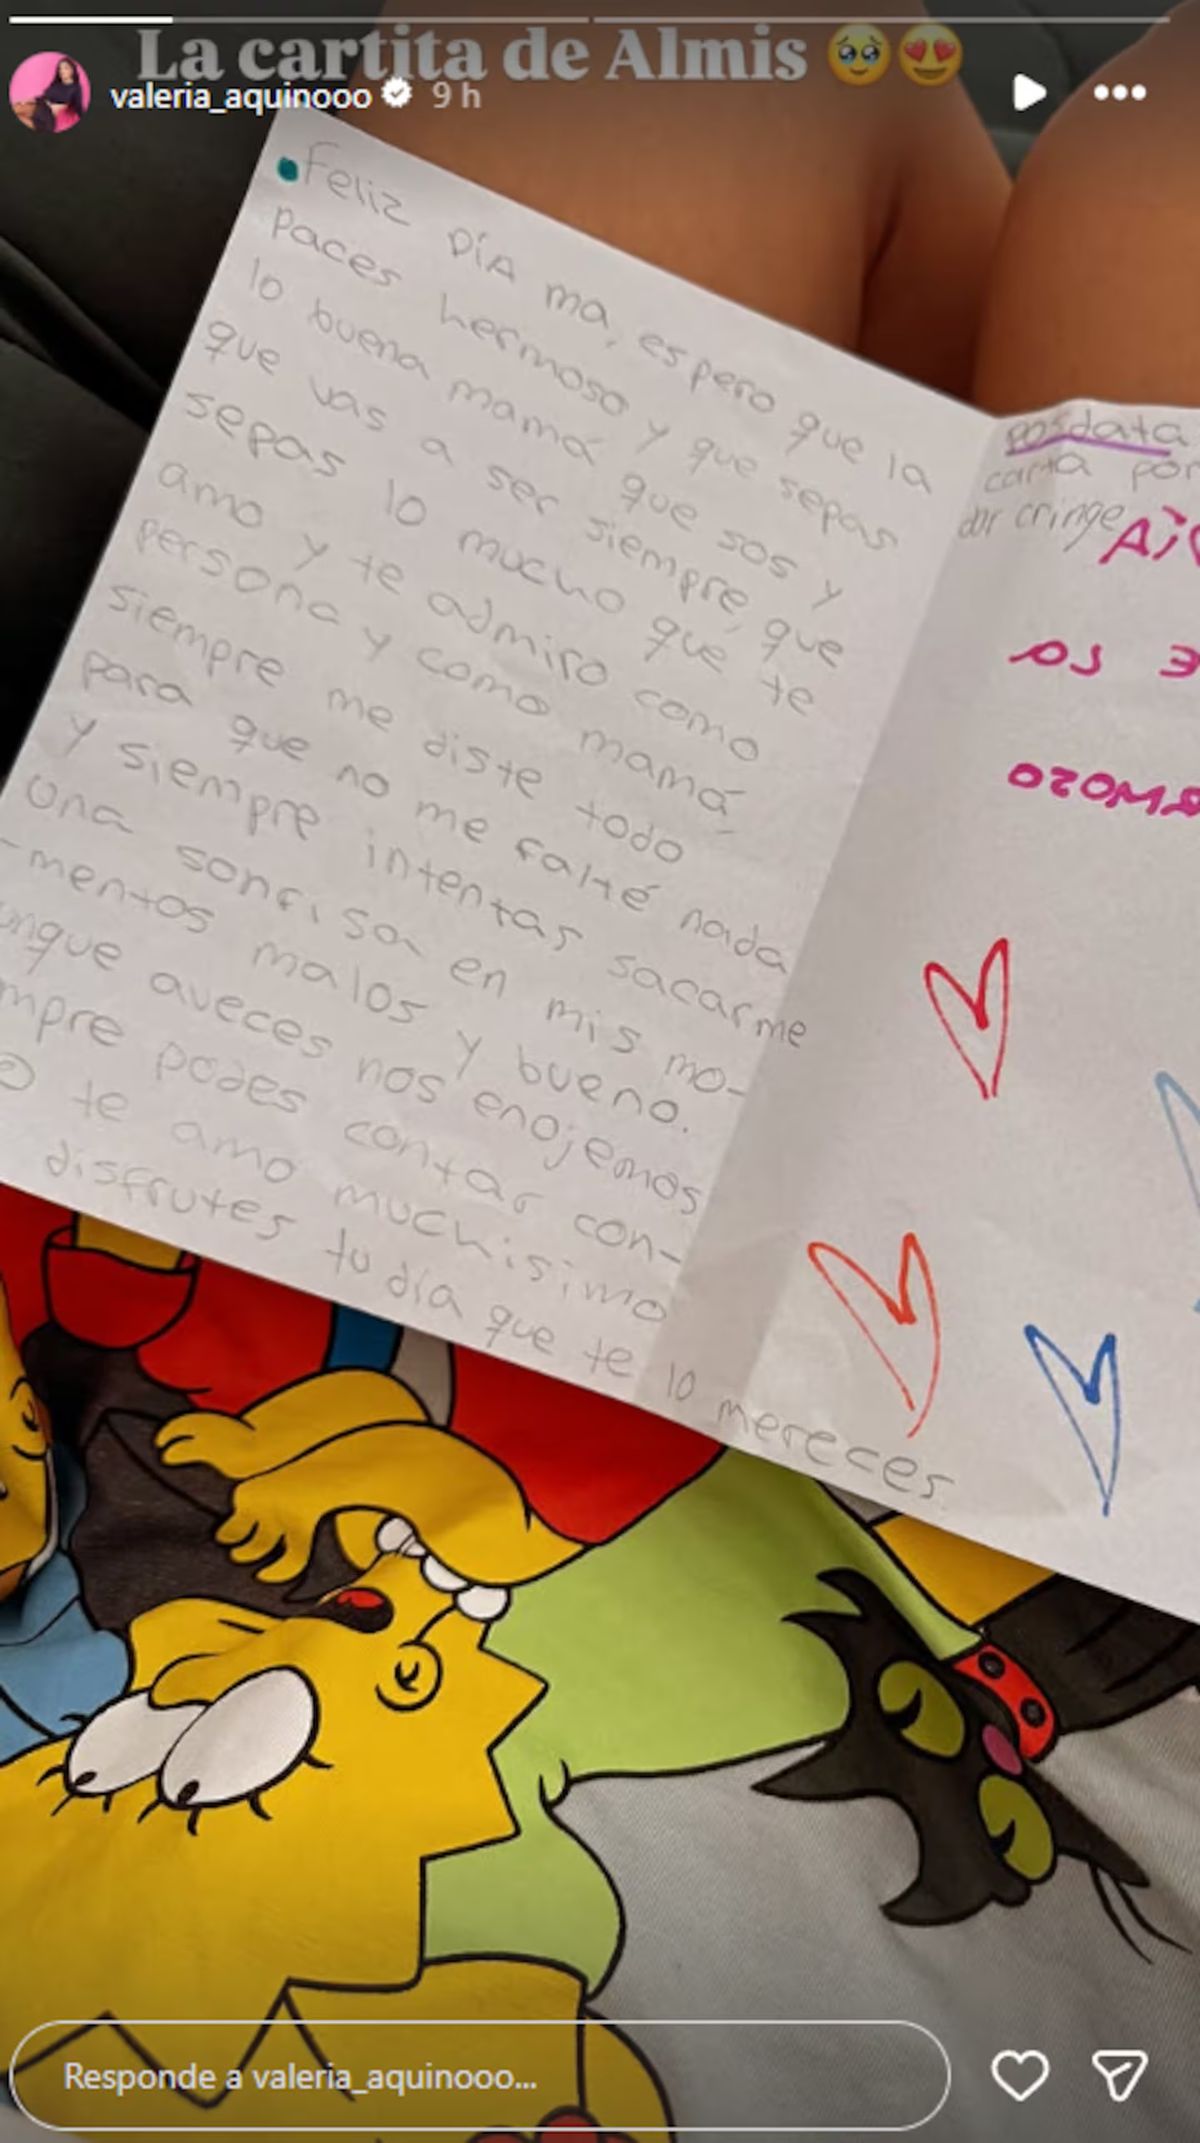 La cartita de Almis 🥹😍
valeria_aquinooo 9 h
Feliz DÍA ma, espero que la
paces hermoso y que sepas
lo buena mamá que sos y
que vas a ser siempre, que
sepas lo mucho que te
amo y te admiro como
persona y como mamá
siempre me diste todo
para que no me falté nada
y siempre intentas sacarme
una sonrisa en mis mo-
-mentos malos y bueno.
aveces nos enojemos
podes contar con-
te amo muchisimo
disfrutes tu día que te lo mereces.
posdata
carta por
dar cringe
Responde a valeria_aquinooo...